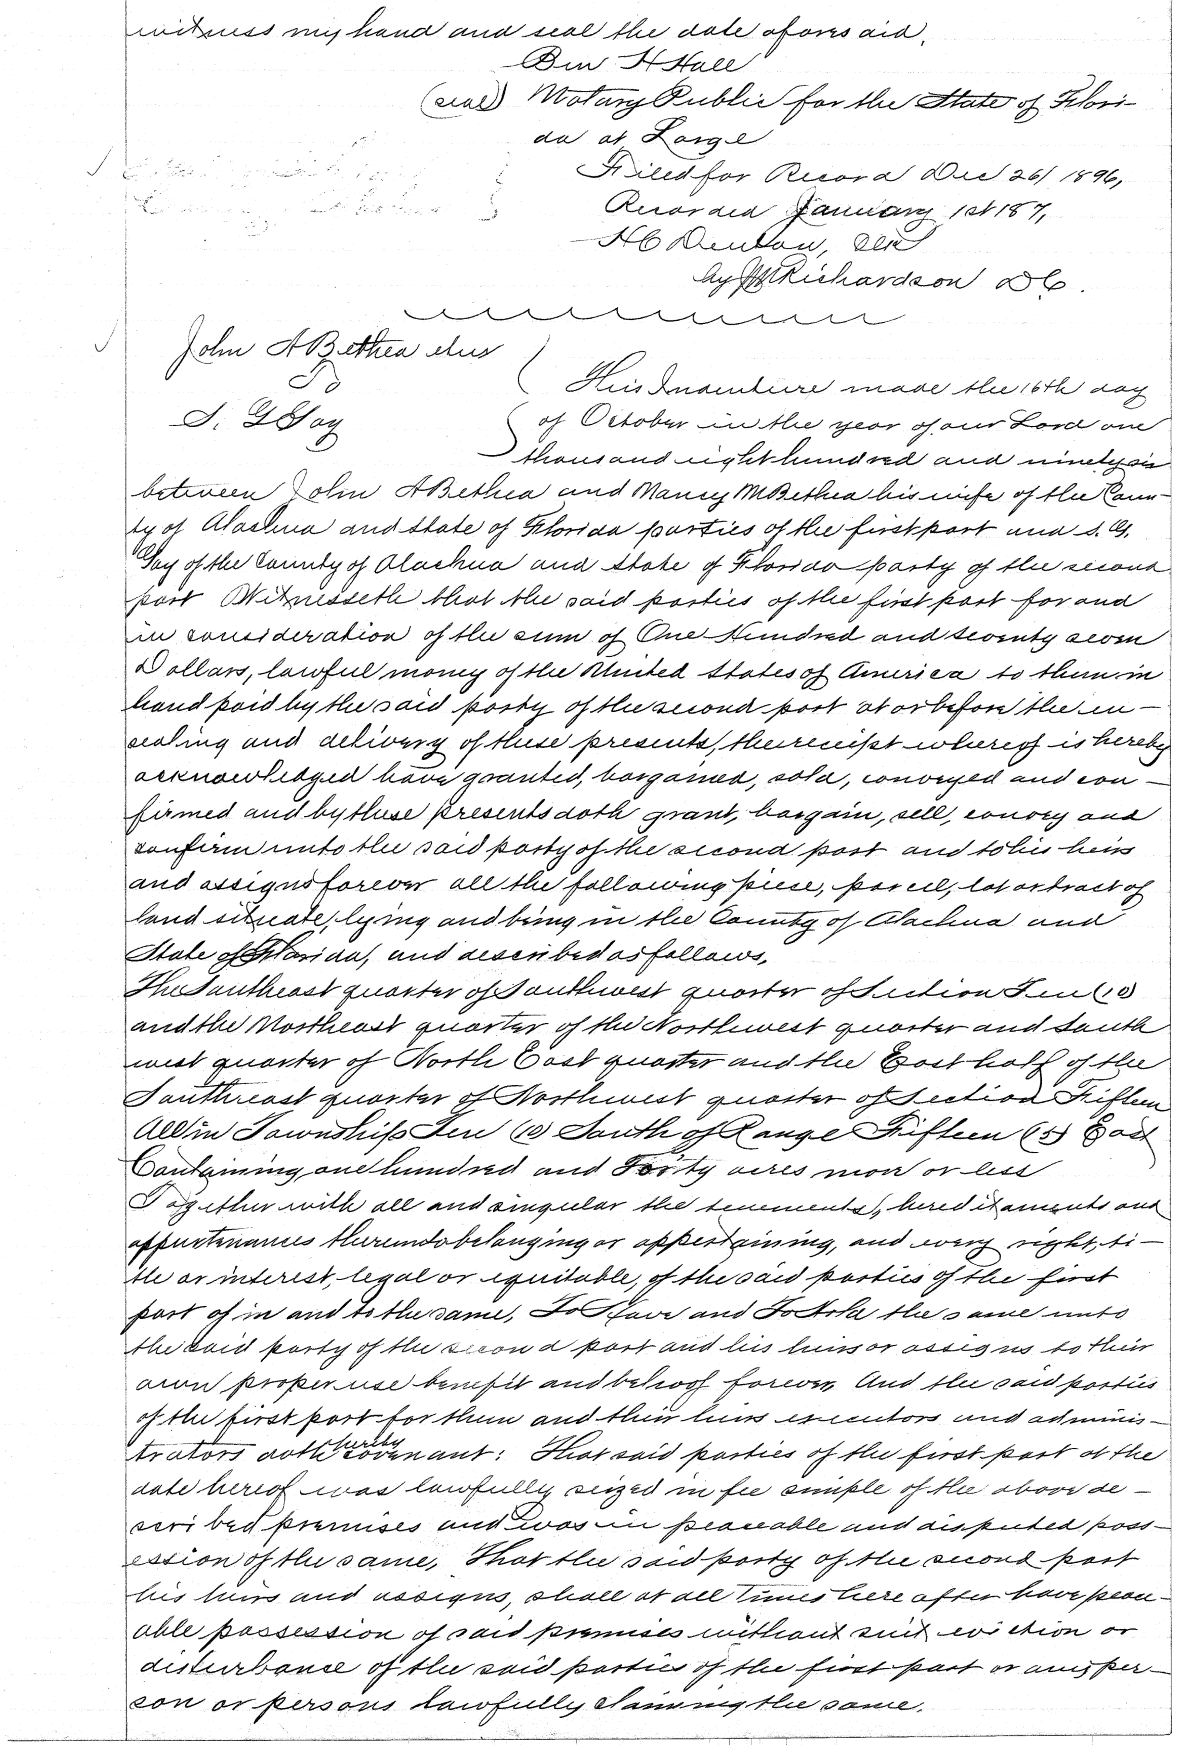 witness my hand and seal the date aforesaid.
Ben H Hall
(seal) Notary Public for the State of Flori-
da at Large
Filed for Record Dec 26/ 1896,
Recorded January 1st 187,
H C Denton, Clk
by Richardson D C.
John A Bethea et ux
To
S. G Gay
This Indenture made the 16th day
of October in the year of our Lord one
thousand eight hundred and ninety six
between John A Bethea and Nancy M Bethea his wife of the Coun-
ty of Alachua and State of Florida parties of the first part and S. G.
Gay of the County of Alachua and State of Florida party of the second
part Witnesseth that the said parties of the first part for and
in consideration of the sum of One Hundred and seventy seven
Dollars, lawful money of the United States of America to them in
hand paid by the said party of the second part at or before the en-
sealing and delivery of these presents, the receipt whereof is hereby
acknowledged have granted, bargained, sold, conveyed and con-
firmed and by these presents doth grant, bargain, sell, convey and
confirm unto the said party of the second part and to his heirs
and assigns forever all the following piece, parcel, lot or tract of
land situate, lying and being in the County of Alachua and
State of Florida, and described as follows,
The Southeast quarter of Southwest quarter of Section Ten (10)
and the Northeast quarter of the Northwest quarter and South
west quarter of North East quarter and the East half of the
Southeast quarter of Northwest quarter of Section Fifteen
All in Township Ten (10) South of Range Fifteen (15) East
Containing one hundred and Forty acres more or less
Together with all and singular the tenements, hereditaments and
appurtenances thereunto belonging or appertaining, and every right, ti-
tle or interest, legal or equitable, of the said parties of the first
part of in and to the same, To Have and To Hold the same unto
the said party of the second part and his heirs or assigns to their
own proper use benefit and behoof forever, And the said parties
of the first part for them and their heirs executors and adminis-
trators doth hereby covenant: That said parties of the first part at the
date hereof was lawfully seized in fee simple of the above de-
scribed premises and was in peaceable and disputed poss-
ession of the same, That the said party of the second part
his heirs and assigns, shall at all times here after have peace-
able possession of said premises without suit eviction or
disturbance of the said parties of the first part or any per-
son or persons lawfully claiming the same.